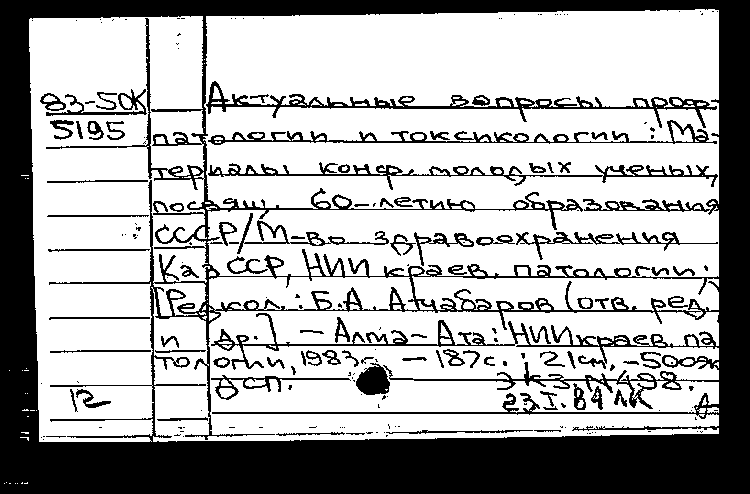 83-50К Актуальные вопросы проф-
5195 патологии и токсикологии : Ма-
териалы конф. молодых ученых,
посвящ. 60-летию образования
СССР/М-во здравоохранения
КазССР, НИИ краев. патологии;
[Редкол.: Б.А. Атчабаров (отв. ред.)
и др.]. – Алма-Ата: НИИ краев. па
тологии, 1983. – 187с. ; 21см. – 500эк
ДСП. Экз. N498.
12 23.I.84 ЛК